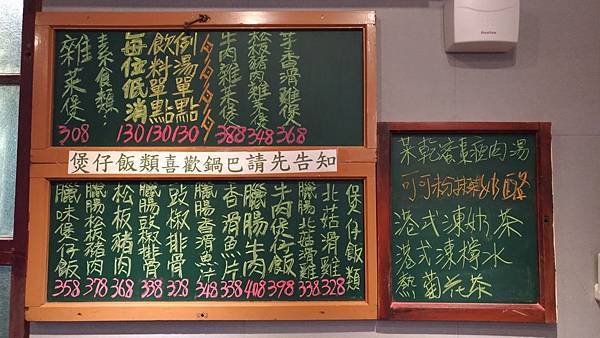 芋香滑雞煲 368
松板豬肉雜菜煲 348
牛肉雜菜煲 388
例湯單點 130
飲料單點 130
每位低消 130
素食類:
雜菜煲 308
煲仔飯類喜歡鍋巴請先告知
煲仔飯類
北菇滑雞 328
臘腸北菇滑雞 338
牛肉煲仔飯 398
臘腸牛肉 408
香滑魚片 338
臘腸香滑魚片 348
豉椒排骨 328
臘腸豉椒排骨 338
松板豬肉 368
臘腸松板豬肉 378
臘味煲仔飯 358
菜乾蜜棗瘦肉湯
可可粉 奶酪
港式凍奶茶
港式凍檸水
熱菊花茶